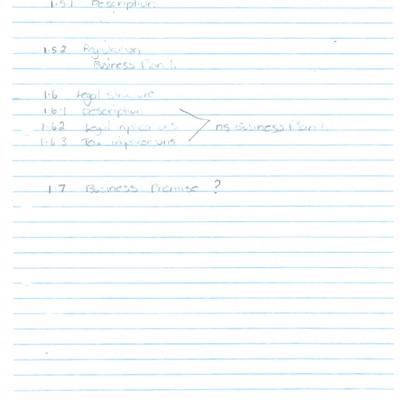 1.5.1 Description
1.5.2 Registration
Business Plan 1.
1.6 Legal structure
1.6.1 Description
1.6.2 Legal implications
ns Business Plan 1.
1.6.3 Tax implications
1.7 Business Premise ?